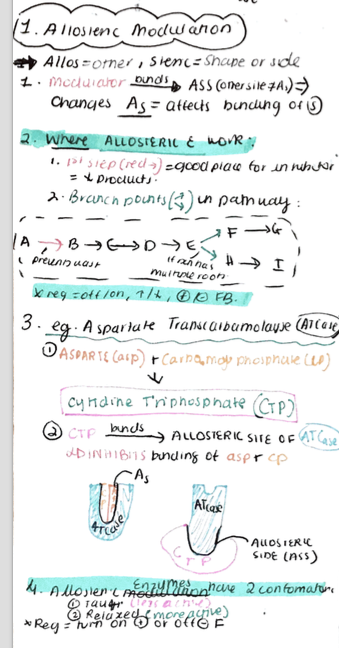 1. Allosteric Modulation
→ Allos = other, Steric = Shape or side
1. Modulator binds → ASS (other site ≠ As) ⇒
Changes As = affects binding of Ⓢ
2. Where ALLOSTERIC E work:
1. 1st step (red →) = good place for inhibitor
= ↓ products.
2. Branch points in pathway:
F → G
A → B → C → D → E
H → I
multiple room
* reg = off/on, ↑/↓, ⊕/⊖ FB.
3. eg. Aspartate Transcarbamolayse (ATCase)
① ASPARTE (asp) + Carbamoyl phosphate (CP)
↓
Cytidine Triphosphate (CTP)
② CTP binds → ALLOSTERIC SITE OF ATCase
↳ INHIBITS binding of asp + cp
As
ATCase
ATCase
CTP
ALLOSTERIC
SIDE (ASS)
4. Allosteric Enzymes have 2 conformations
① Taut (less active)
② Relaxed (more active)
* Reg = turn on ⊕ or off ⊖ F